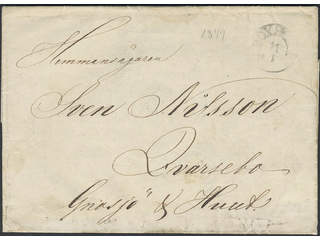 1849
11
Hemmansägaren
Sven Nilsson
Qvarsebo
Gnosjö &